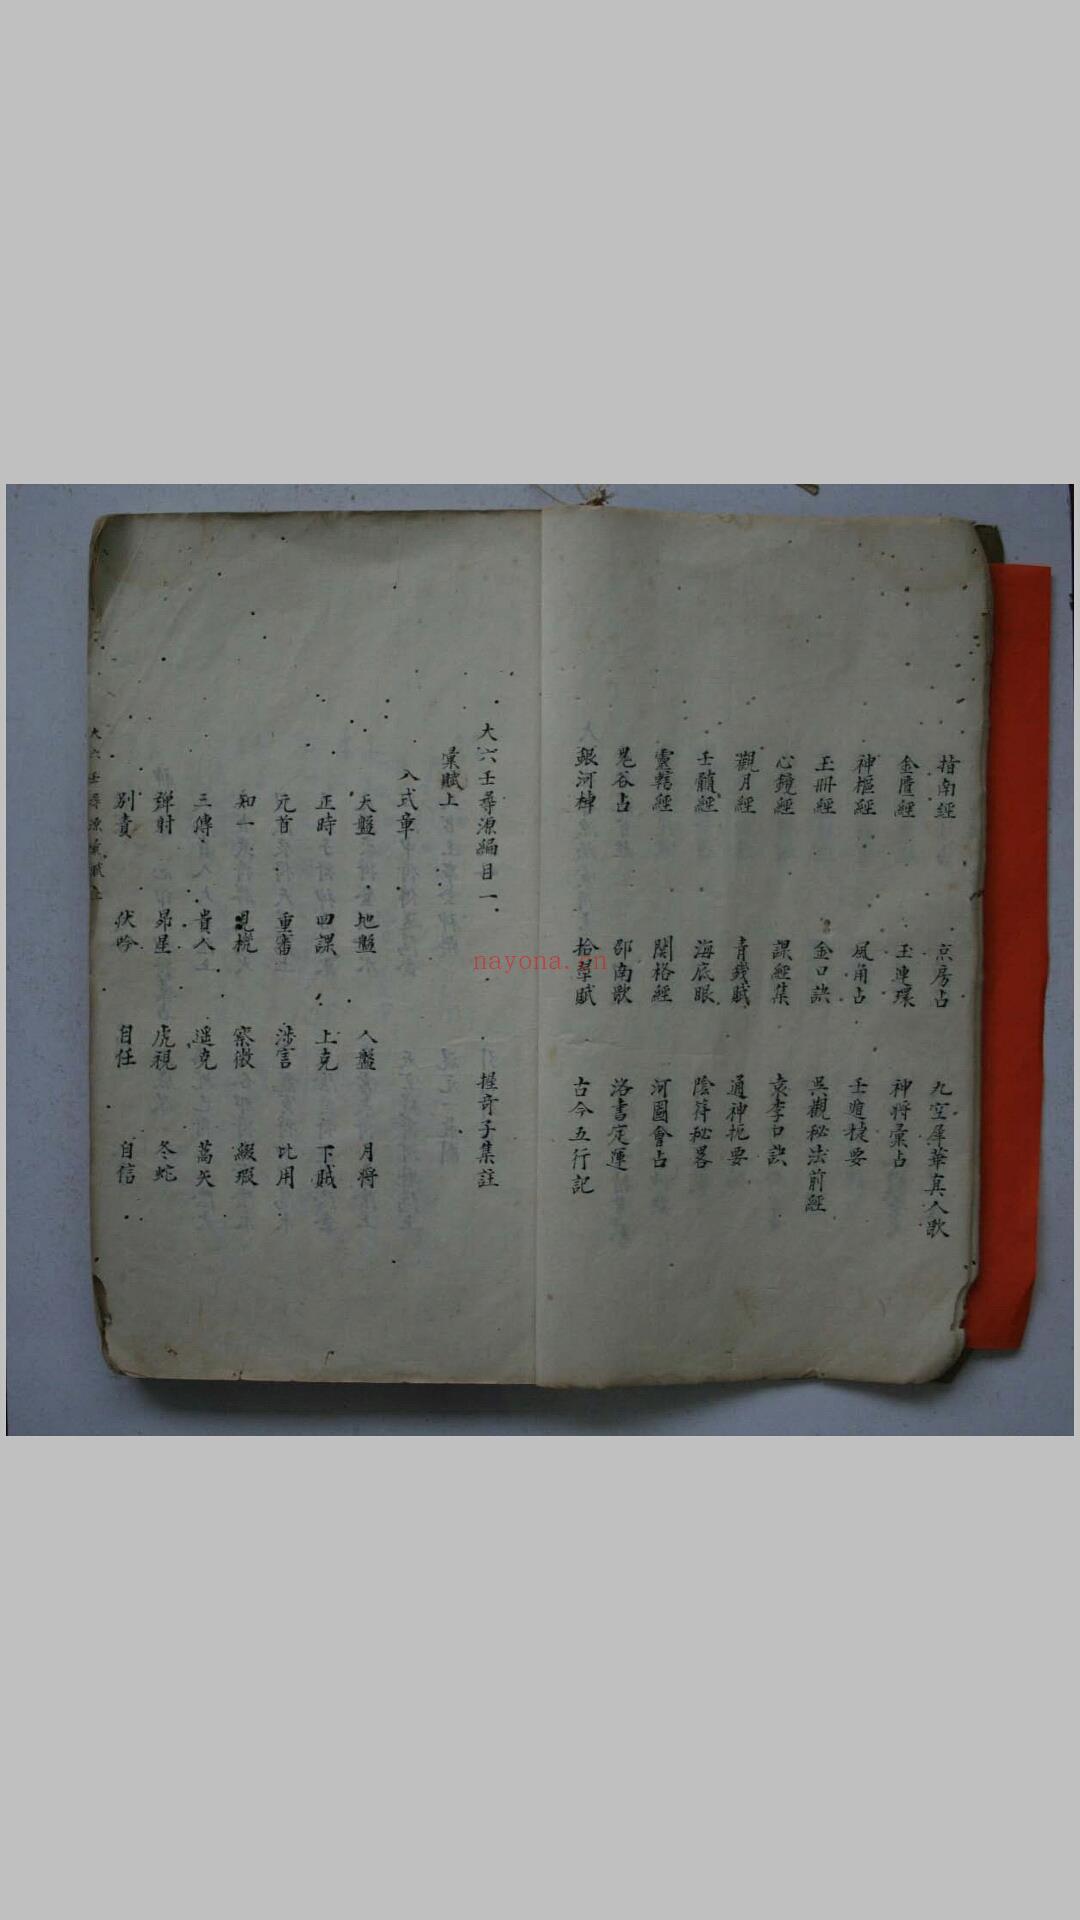 指南經 京房占 九空犀華真人歌
金匱經 玉連環 神將彙占
神樞經 風角占 壬遁捷要
玉冊經 金口訣 吳觀秘法前經
心鏡經 課經集 袁李口訣
觀月經 青錢賦 通神扼要
壬髓經 海底眼 陰符秘畧
靈轄經 関格經 河圖會占
鬼谷占 邵南歌 洛書定運
銀河棹 拾翠賦 古今五行記
大六壬尋源編目一 握奇子集註
彙賦上
入式章
天盤 地盤 人盤 月將
正時 四課 上克 下賊
元首 重審 涉害 比用
知一 見機 察微 綴瑕
三傳 貴人 遥克 蒿矢
弹射 昴星 虎視 冬蛇
别責 伏吟 自任 自信
大六壬尋源彙賦上
nayona.cn